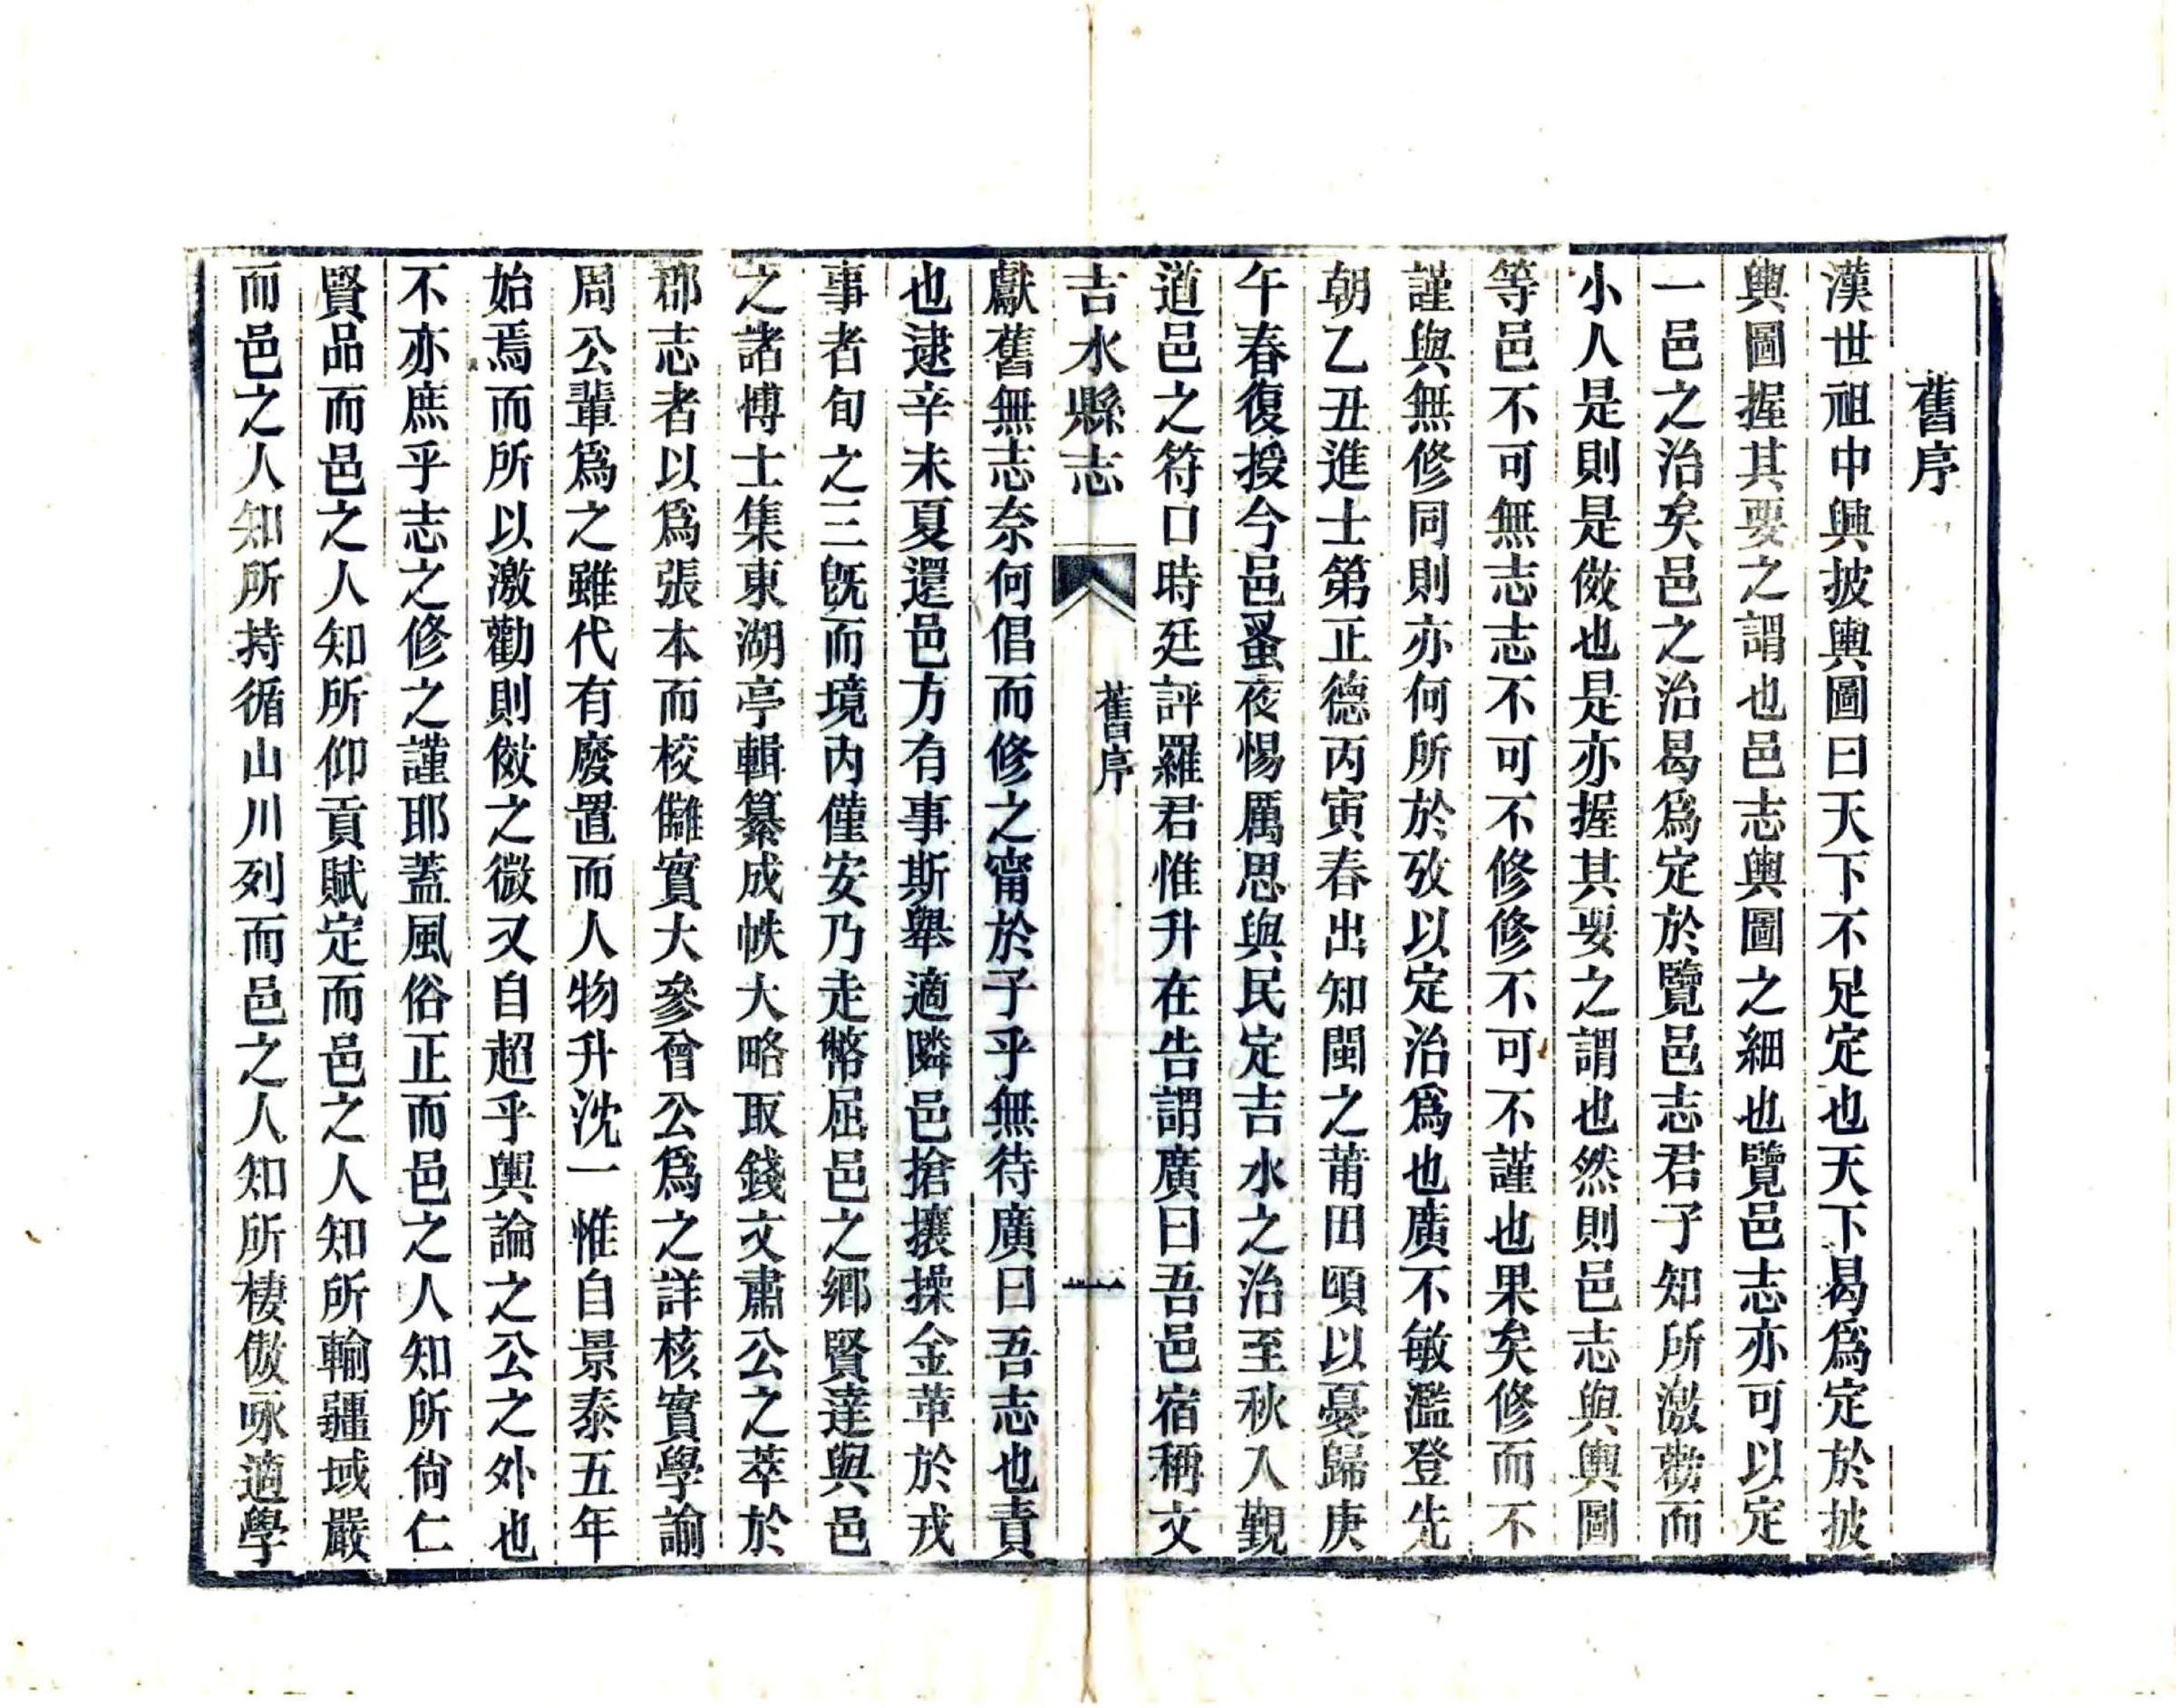 舊序
漢世祖中興披輿圖曰天下不足定也天下曷為定於披
輿圖握其要之謂也邑志輿圖之細也覽邑志亦可以定
一邑之治矣邑之治曷為定於覽邑志君子知所激勸而
小人是則是傚也是亦握其要之謂也然則邑志與輿圖
等邑不可無志志不可不修修不可不謹也果矣修而不
謹與無修同則亦何所於攷以定治為也廣不敏濫登先
朝乙丑進士第正德丙寅春出知閩之莆田頃以憂歸庚
午春復授今邑蚤夜惕厲思與民定吉水之治至秋入覲
道邑之符口時廷評羅君惟升在告謂廣曰吾邑宿稱文
吉水縣志 舊序 一
獻舊無志奈何倡而修之甯於子乎無待廣曰吾志也責
也逮辛未夏還邑方有事斯舉適隣邑搶攘操金革於戎
事者旬之三旣而境內僅安乃走幣屈邑之鄉賢達與邑
之諸博士集東湖亭輯纂成帙大略取錢文肅公之萃於
郡志者以為張本而校讎實大參曾公為之詳核實學諭
周公輩為之雖代有廢置而人物升沈一惟自景泰五年
始焉而所以激勸則傚之微又自超乎輿論之公之外也
不亦庶乎志之修之謹耶蓋風俗正而邑之人知所尙仁
賢品而邑之人知所仰貢賦定而邑之人知所輸疆域嚴
而邑之人知所持循山川列而邑之人知所棲傲咏適學